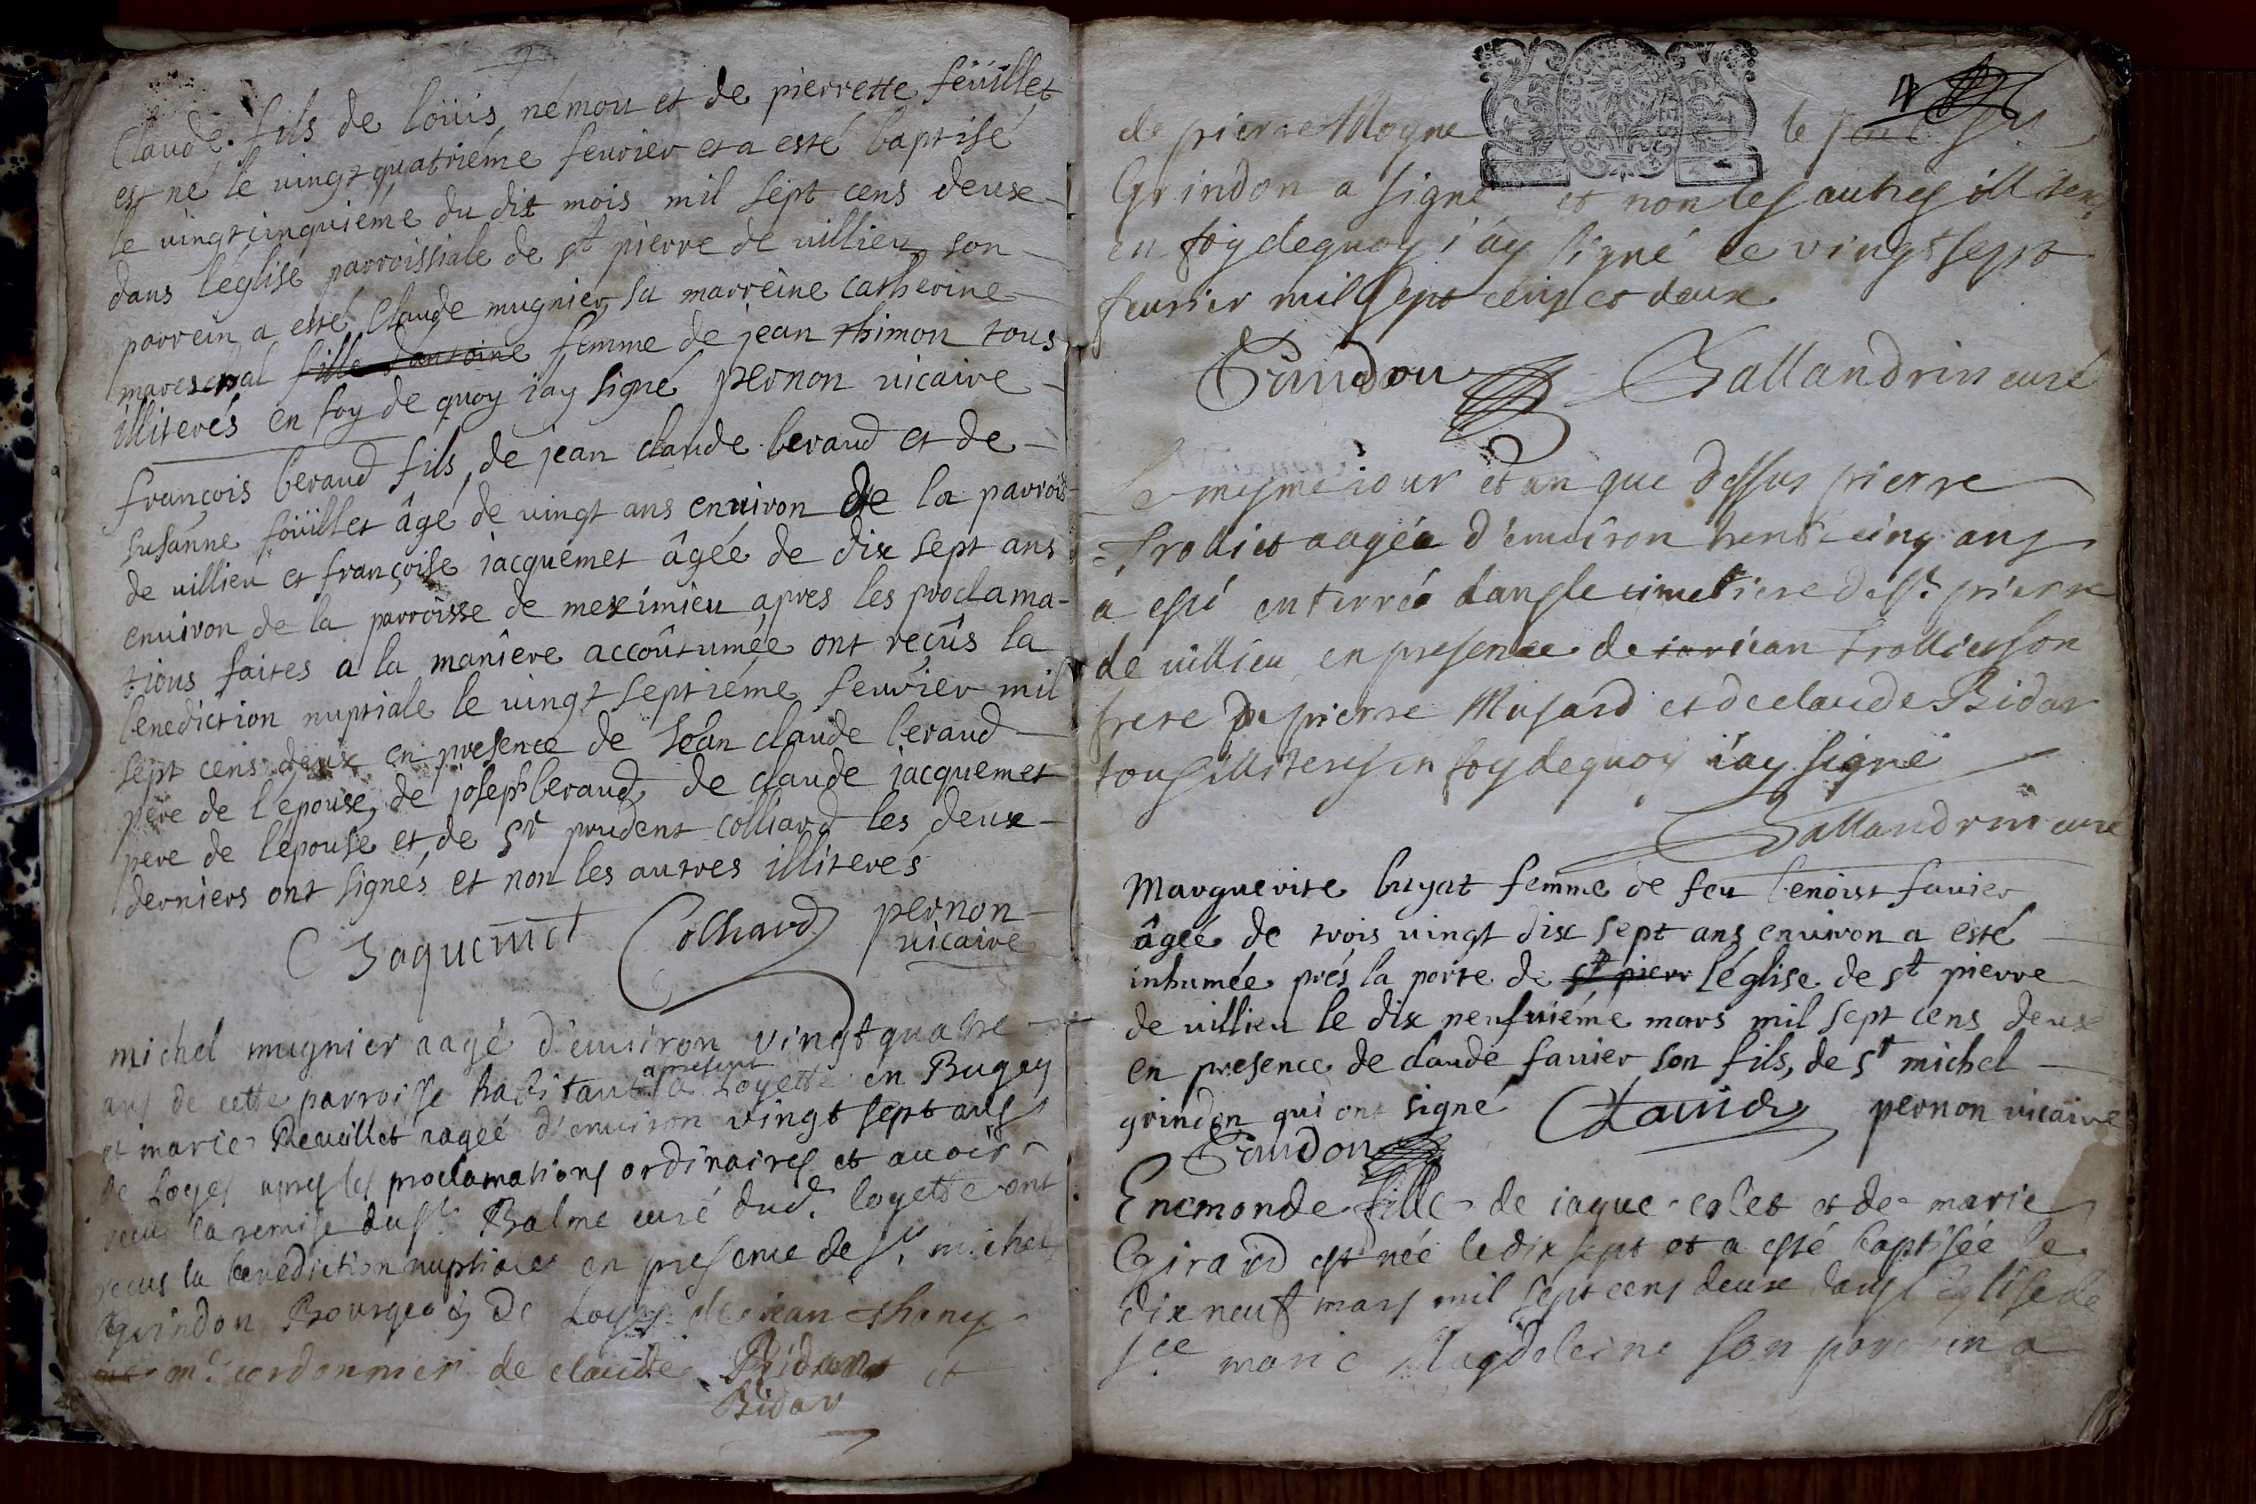 Claude fils de loüis némou et de pierrette feüillet
est né le vingt quatriéme feurier et a esté baptisé
le vingtcinquiéme du dit mois mil sept cens deux
dans léglise parroissiale de st pierre de villieu son
parrein a esté Claude mugnier sa marreine catherine
mareschal fille d'antoine femme de jean thimon tous
illiterés en foy de quoy iay signé pernon vicaire
françois beraud fils de jean claude beraud et de
susanne foüillet âgé de vingt ans enuiron de la parrois
de villieu et françoise iacquemet âgée de dix sept ans
enuiron de la parroisse de meximieu apres les proclama-
tions faites a la maniere accoûtumée ont reçûs la
benediction nuptiale le vingt septiéme feurier mil
sept cens deux en presence de Jean claude beraud
pere de l'epoux, de joseph beraud, de claude jacquemet
pere de l'épouse et de sr prudent colliard les deux
derniers ont signés et non les autres illiterés
C Jaquemet Colliard pernon
vicaire
michel mugnier aagé d'enuiron vingt quatre
ans de cette parroisse habitant apresent a Loyette en Bugey
et marie Reuillet aagée d'enuiron vingt sept ans
de Loyes apres les proclamations ordinaires et auoir
receu la remise du sr Balme curé dud. loyette ont
receus la benediction nuptiale en presence de sr. michel
grindon Bourgeois de Loyes de iean
mr. cordonnier de claude Bidar et
Bidar
4
de pierre Moyne le
Grindon a signé et non les autres illiterés
en foy dequoy i'ay signé le vingt sept
feurier mil sept cens et deux
Grindon Gallandrin curé
Le mesme iour et an que dessus pierre
Trollier aagée d'enuiron trente cinq ans
a esté enterrée dans le cimetiere de st. pierre
de villieu en presence de iean trollier son
frere de pierre Musard et de claude Bidar
tous illiterés en foy dequoy i'ay signé
Gallandrin curé
Marguerite buyat femme de feu benoist fauier
âgée de trois vingt dix sept ans enuiron a esté
inhumée prés la porte de st pierr léglise de st pierre
de villieu le dix neufuiéme mars mil sept cens deux
en presence de claude fauier son fils, de sr michel
grindon qui ont signé C fauier pernon vicaire
Grindon
Enemonde fille de iaque colet et de marie
Girard est née le dix sept et a esté baptisée le
dix neuf mars mil sept cens deux dans l'Eglise de
ste marie Magdeleine son parrein a